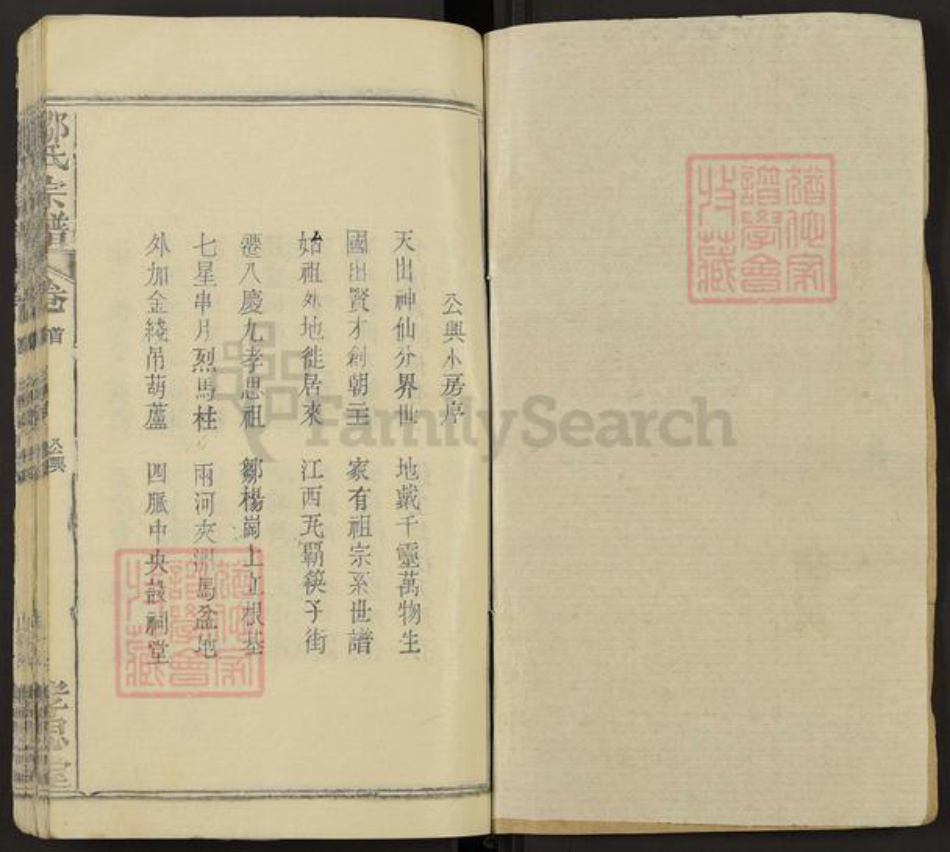 公興小房序
天出神仙分界世 地戴千靈萬物生
國出賢才創朝主 家有祖宗系世譜
始祖外地徙居來 江西瓦覇筷子街
遷八慶九孝思祖 鄒楊崗上立根基
七星串月烈馬柱 兩河夾洲馬盆地
外加金綫吊葫蘆 四脈中央設祠堂
鄒氏宗譜
卷首
公興
孝思堂
FamilySearch
猶他家譜學會收藏
猶他家譜學會收藏